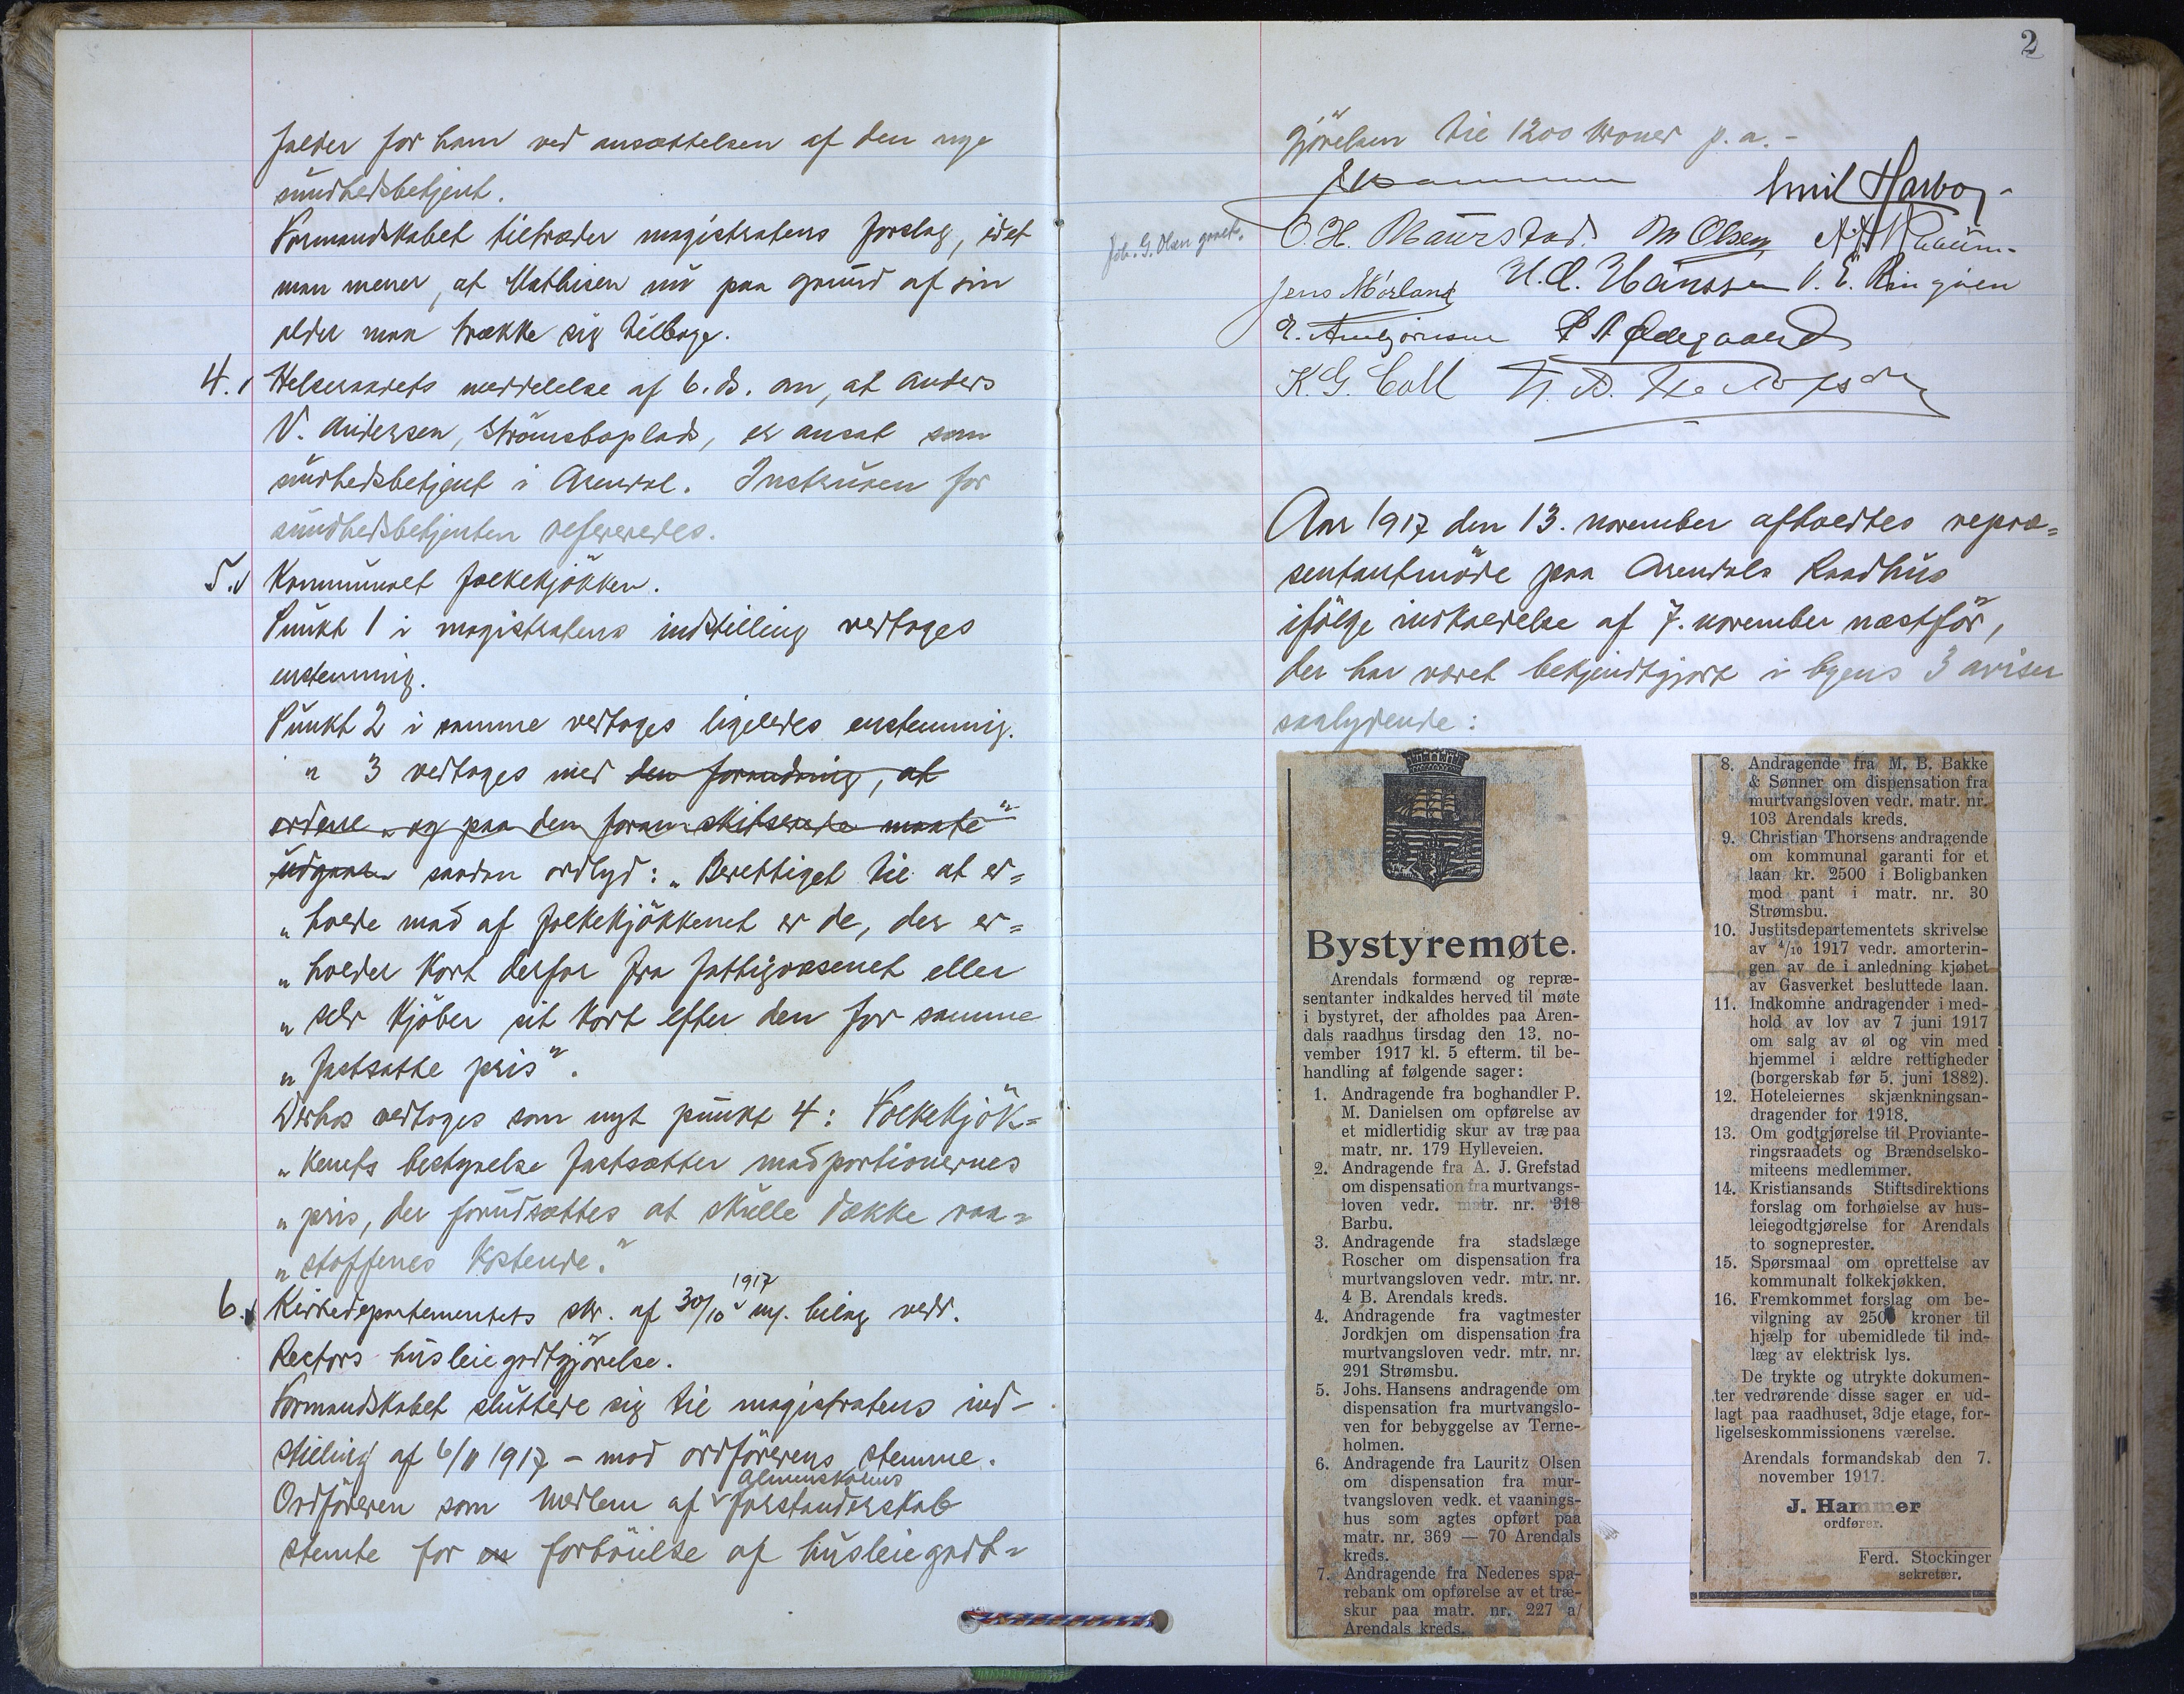 falder for ham ved ansættelsen af den nye
sundhedsbetjent.
Formandskabet tiltræder magistratens forslag, idet
man mener, at Mathisen nu paa grund af sin
alder maa trække sig tilbage.
4. Helseraadets meddelelse af 6. ds. om, at Anders
V. Andersen, Strömsboplads, er ansat som
sundhedsbetjent i Arendal. Instruxen for
sundhedsbetjenten refereredes.
5. Kommunalt folkekjökken.
Punkt 1 i magistratens indstilling vedtoges
enstemmig.
Punkt 2 i samme vedtoges ligeledes enstemmig.
" 3 vedtoges med den forandring, at
ordene „og paa den foran skitserede maate"
udgaar saadan ordlyd: „Berettiget til at er=
„holde mad af folkekjökkenet er de, der er=
„holder kort derfor fra fattigvæsenet eller
„selv kjöber sit kort efter den for samme
„fastsatte pris".
Derhos vedtoges som nyt punkt 4: Folkekjök=
„kenets bestyrelse fastsætter madportionernes
„pris, der forudsættes at skulle dække raa=
„stoffenes kostende."
6. Kirkedepartementets skr. af 30/10 1917 m. bilag vedr.
Rectors husleiegodtgjörelse.
Formandskabet sluttede sig til magistratens ind-
stilling af 6/11 1917 - mod ordförerens stemme.
Ordföreren som medlem af almenskolens forstanderskab
stemte for en forhöielse af husleiegodt=
2
gjörelsen til 1200 kroner p. a. -
J Hammer Emil Harboe
Joh. G. Olsen
O. H. Maurstad. M Olsen
Jens Mörland H. C. Hanssen
P A Ödegaard
K. G. Coll
Aar 1917 den 13. november afholdtes repræ=
sentantmöde paa Arendals Raadhus
ifölge indkaldelse af 7. november næstför,
der har været bekjendtgjort i byens 3 aviser
saalydende:
Bystyremøte.
Arendals formænd og repræ-
sentanter indkaldes herved til møte
i bystyret, der afholdes paa Aren-
dals raadhus tirsdag den 13. no-
vember 1917 kl. 5 efterm. til be-
handling af følgende sager:
1. Andragende fra boghandler P.
M. Danielsen om opførelse av
et midlertidig skur av træ paa
matr. nr. 179 Hylleveien.
2. Andragende fra A. J. Grefstad
om dispensation fra murtvangs-
loven vedr. matr. nr. 318
Barbu.
3. Andragende fra stadslæge
Roscher om dispensation fra
murtvangsloven vedr. mtr. nr.
4 B. Arendals kreds.
4. Andragende fra vagtmester
Jordkjen om dispensation fra
murtvangsloven vedr. mtr. nr.
291 Strømsbu.
5. Johs. Hansens andragende om
dispensation fra murtvangslo-
ven for bebyggelse av Terne-
holmen.
6. Andragende fra Lauritz Olsen
om dispensation fra mur-
tvangsloven vedk. et vaanings-
hus som agtes opført paa
matr. nr. 369 — 70 Arendals
kreds.
7. Andragende fra Nedenes spa-
rebank om opførelse av et træ-
skur paa matr. nr. 227 a/
Arendals kreds.
8. Andragende fra M. B. Bakke
& Sønner om dispensation fra
murtvangsloven vedr. matr. nr.
103 Arendals kreds.
9. Christian Thorsens andragende
om kommunal garanti for et
laan kr. 2500 i Boligbanken
mod pant i matr. nr. 30
Strømsbu.
10. Justitsdepartementets skrivelse
av 4/10 1917 vedr. amorterin-
gen av de i anledning kjøbet
av Gasverket besluttede laan.
11. Indkomne andragender i med-
hold av lov av 7 juni 1917
om salg av øl og vin med
hjemmel i ældre rettigheder
(borgerskab før 5. juni 1882).
12. Hoteleiernes skjænkningsan-
dragender for 1918.
13. Om godtgjørelse til Proviante-
ringsraadets og Brændselsko-
miteens medlemmer.
14. Kristiansands Stiftsdirektions
forslag om forhøielse av hus-
leiegodtgjørelse for Arendals
to sogneprester.
15. Spørsmaal om oprettelse av
kommunalt folkekjøkken.
16. Fremkommet forslag om be-
vilgning av 2500 kroner til
hjælp for ubemidlede til ind-
læg av elektrisk lys.
De trykte og utrykte dokumen-
ter vedrørende disse sager er ud-
lagt paa raadhuset, 3dje etage, for-
ligelseskommissionens værelse.
Arendals formandskab den 7.
november 1917.
J. Hammer
ordfører.
Ferd. Stockinger
sekretær.